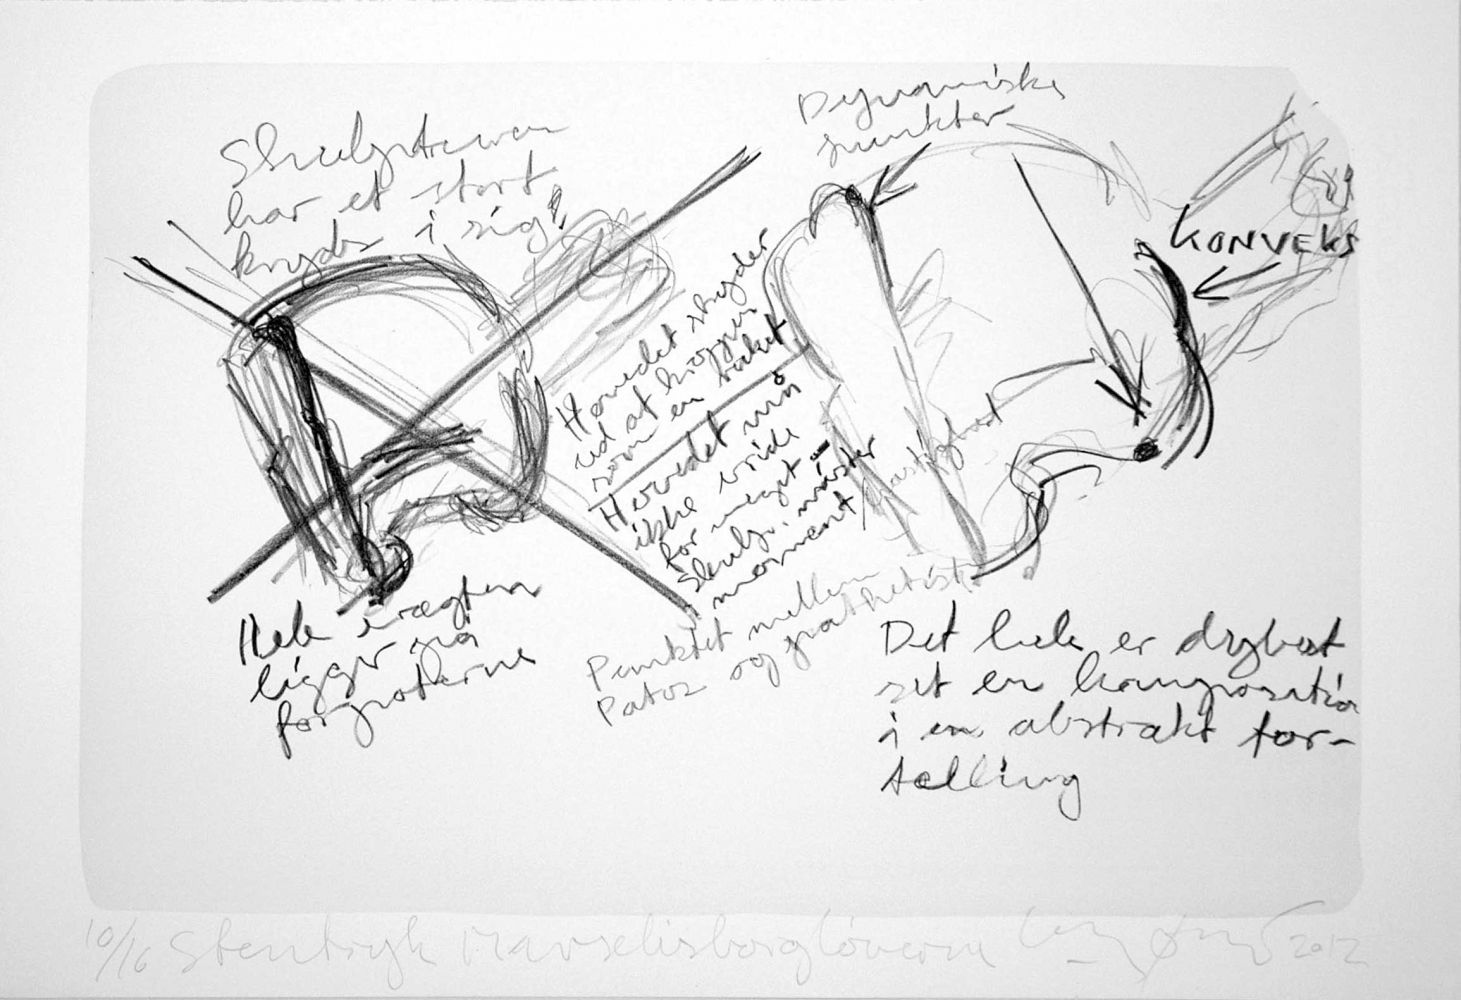 Skulpturen
har et stort
kryds i sig!
Dynamiske
punkter
KONVEKS
Hovedet skyder
ud at kroppen
som en raket
Hovedet må
ikke vride
for meget -
skulp. mister
moment/hastighed
Punktet mellem
Patos og patetisk
Hele vægten
ligger på
forpoterne
Det hele er dybest
set en komposition
i en abstrakt for-
tælling
10/16 Stentryk Marselisborgløverne 2012